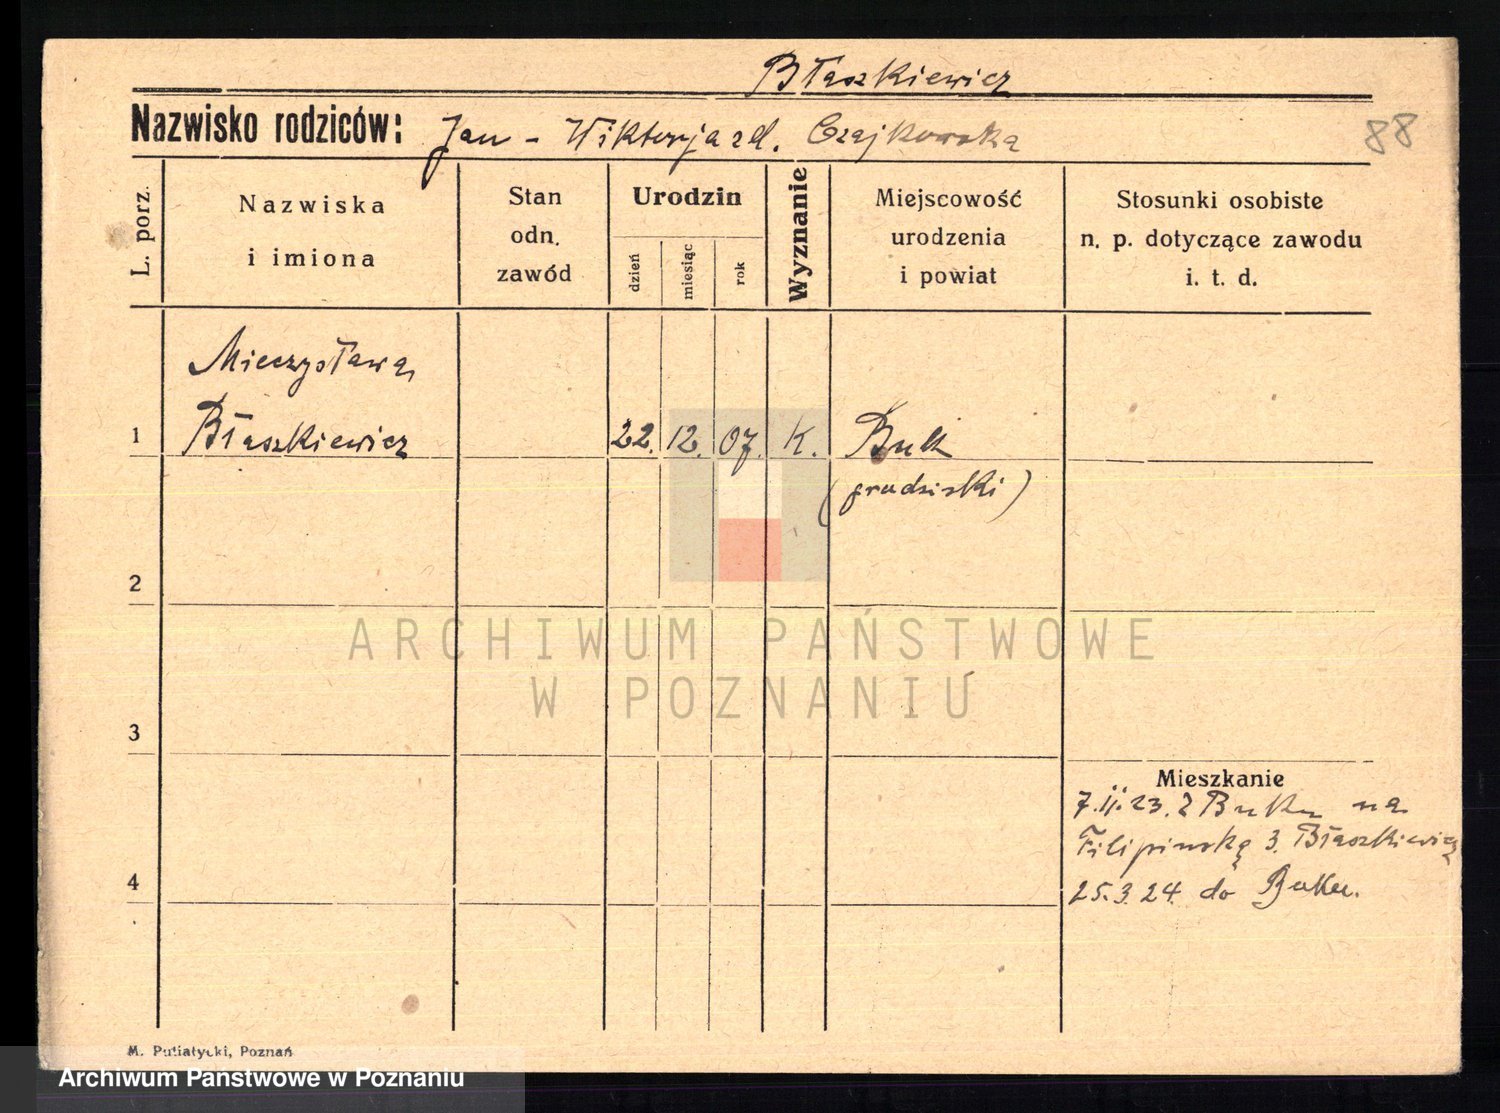 Błaszkiewicz
Nazwisko rodziców: Jan - Wiktorja zd. Czajkowska
88
L. porz.
Nazwiska
i imiona
Stan
odn.
zawód
Urodzin
dzień
miesiąc
rok
Wyznanie
Miejscowość
urodzenia
i powiat
Stosunki osobiste
n. p. dotyczące zawodu
i. t. d.
Mieczysława
1 Błaszkiewicz 22. 12. 07. K. Buk
(grudziski)
2
3
Mieszkanie
7.II.23. z Buku na
Filipińską 3. Błaszkiewicz
4
25.3.24. do Buku.
ARCHIWUM PAŃSTWOWE
W POZNANIU
M. Putiatycki, Poznań
Archiwum Państwowe w Poznaniu